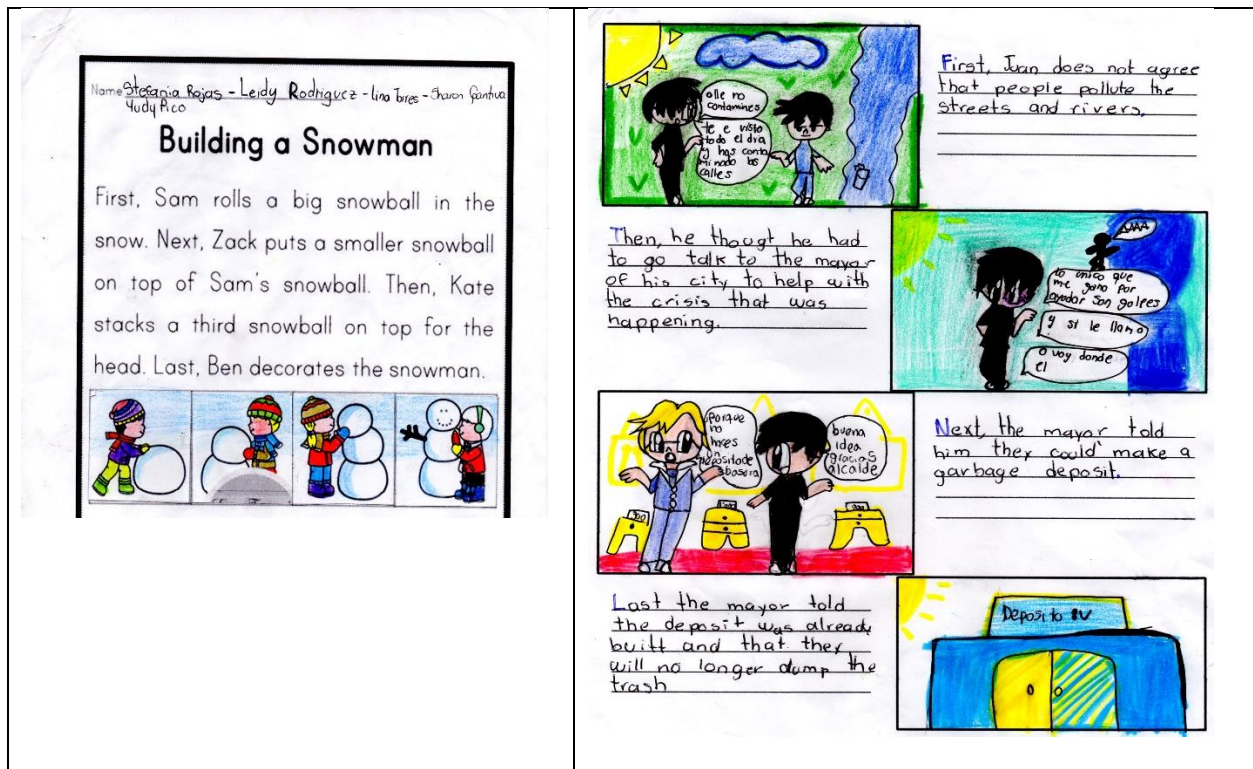 Name Stefania Rojas - Leidy Rodriguez - Lina Torres - Sharon
Yudy Pico
Building a Snowman
First, Sam rolls a big snowball in the
snow. Next, Zack puts a smaller snowball
on top of Sam's snowball. Then, Kate
stacks a third snowball on top for the
head. Last, Ben decorates the snowman.
olle no
contamines
te e visto
todo el dia
y has conta
minado las
calles
First, Juan does not agree
that people pollute the
streets and rivers.
Then, he thougt he had
to go talk to the mayor
of his city to help with
the crisis that was
happening.
lo unico que
me gano por
ayudar son golpes
y si le llamo
o voy donde
el
Porque
no
haces
un
deposito de
basura
buena
idea
gracias
alcalde
Next, the mayor told
him they could make a
garbage deposit.
Last the mayor told
the deposit was already
built and that they
will no longer dump the
trash
Deposito